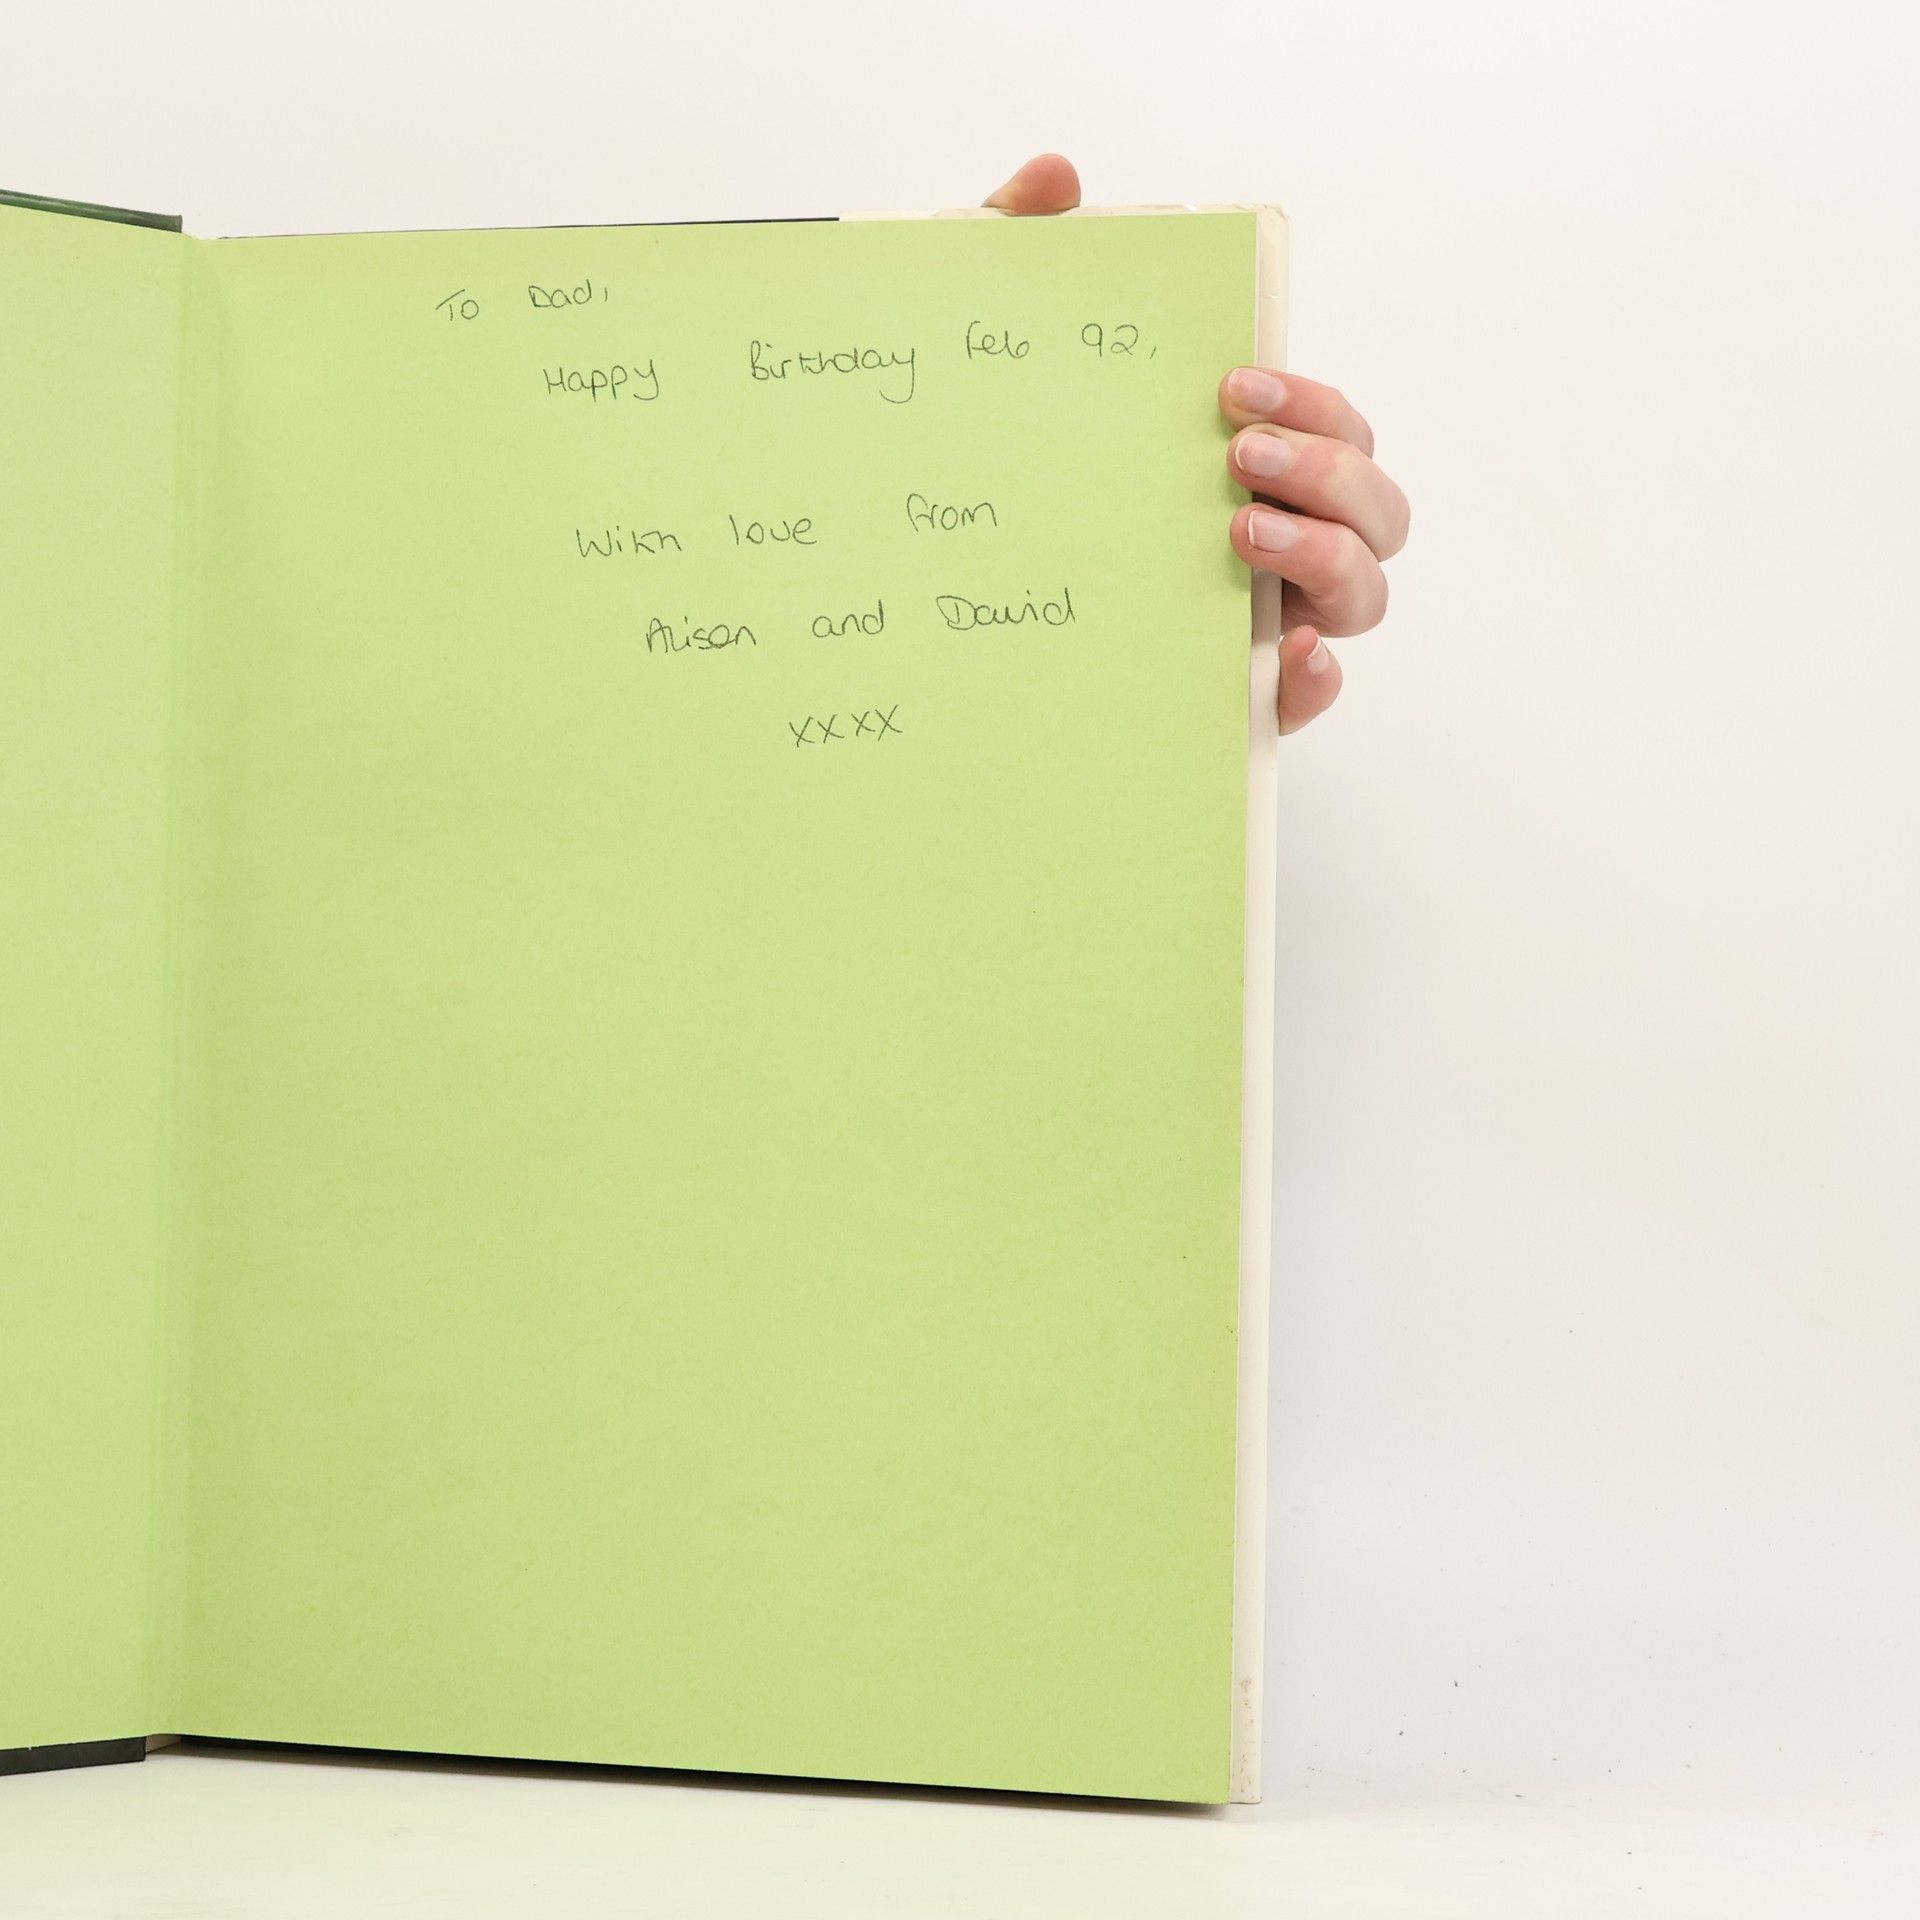 To Dad,
Happy Birthday Feb 92,
With love from
Alison and David
xxxx